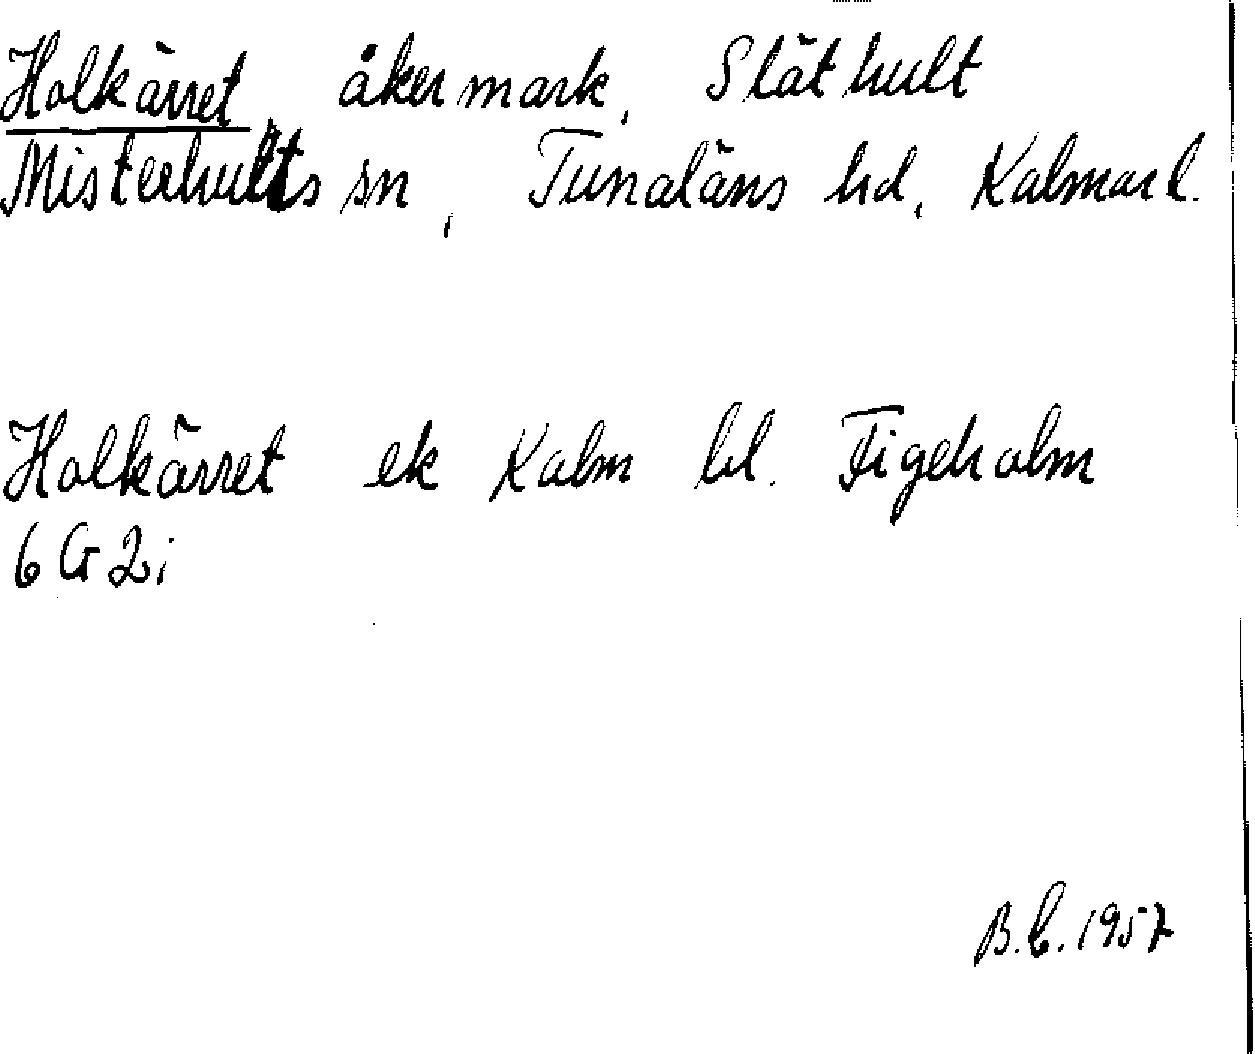 Holkärret, åkermark, Släthult
Misterhults sn, Tunaläns hd, Kalmar l.
Holkärret ek Kalm bl. Figeholm
6 G 2i
B.C. 1957